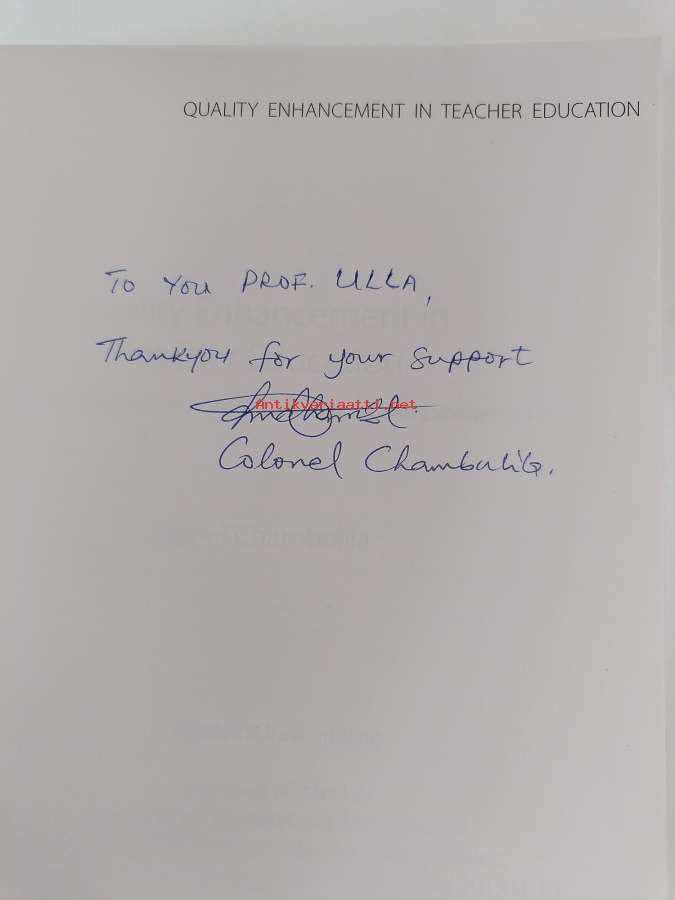 QUALITY ENHANCEMENT IN TEACHER EDUCATION
TO YOU PROF. ULLA,
Thankyou for your support
Antikvariaatti.net
Colonel Chambulila.